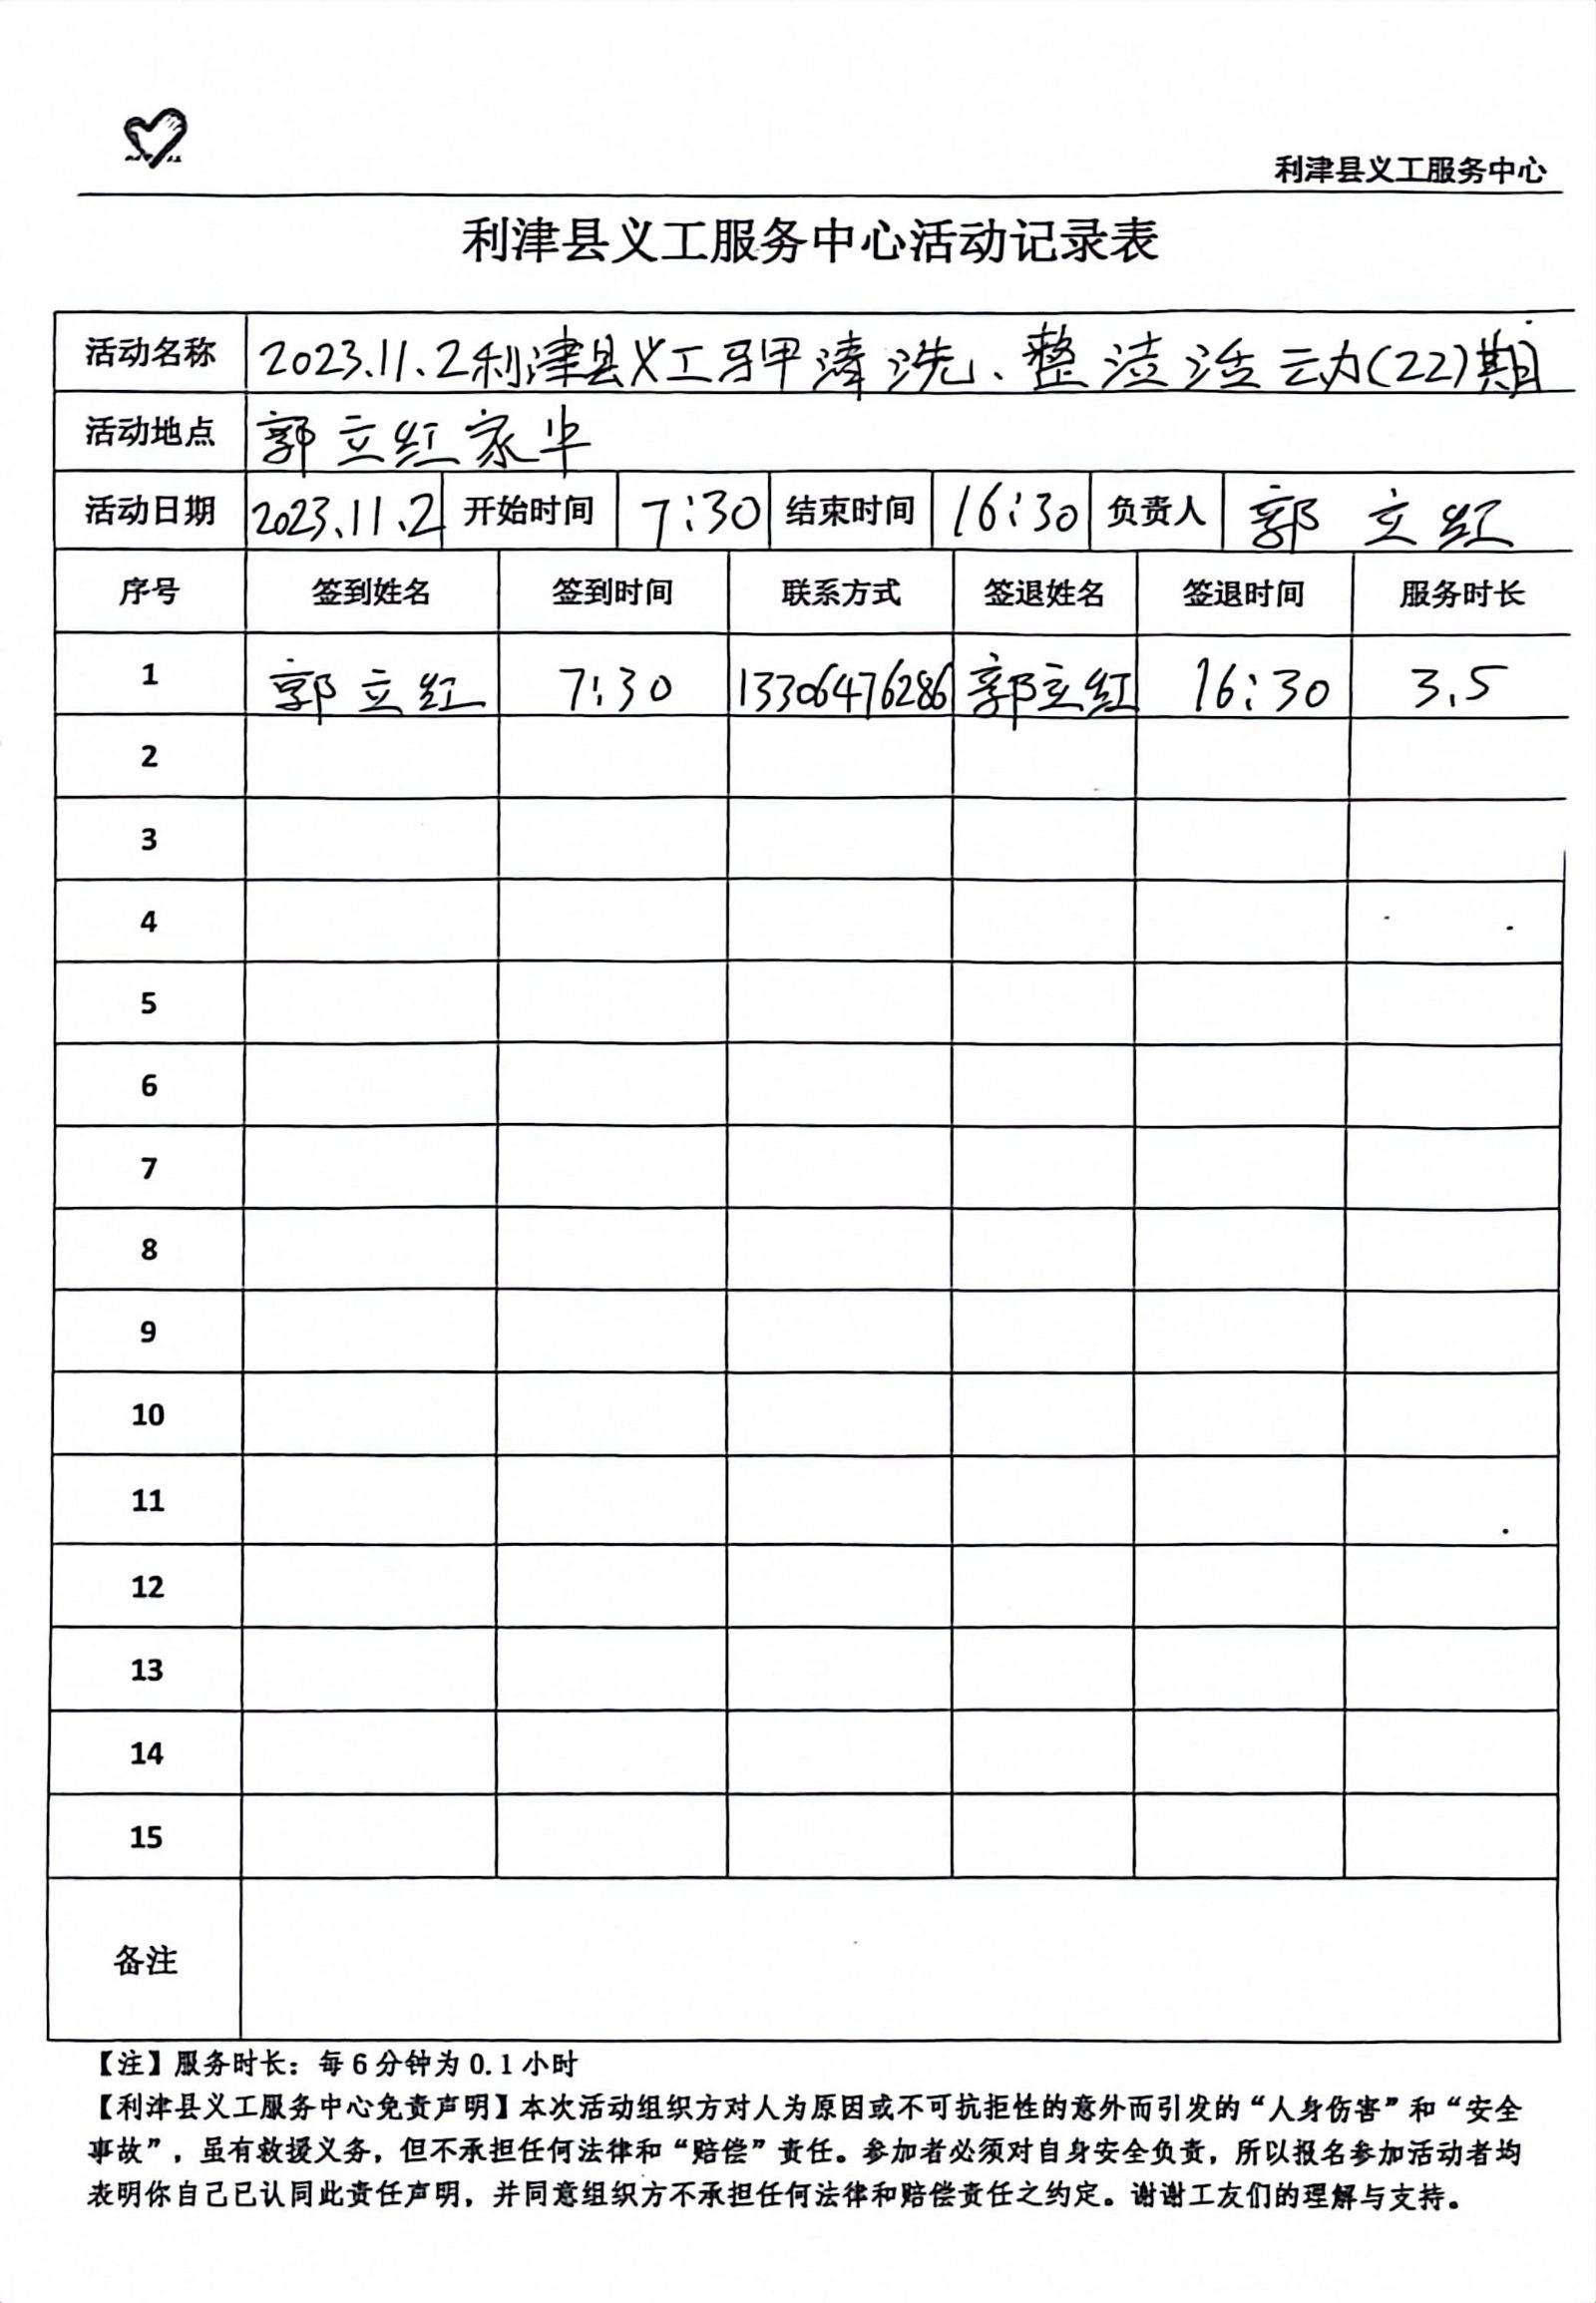 利津县义工服务中心
利津县义工服务中心活动记录表
活动名称 2023.11.2利津县义工马甲清洗、整洁活动(22)期
活动地点 郭立红家中
活动日期 2023.11.2 开始时间 7:30 结束时间 16:30 负责人 郭立红
序号 签到姓名 签到时间 联系方式 签退姓名 签退时间 服务时长
1 郭立红 7:30 13306476286 郭立红 16:30 3.5
2
3
4
5
6
7
8
9
10
11
12
13
14
15
备注
【注】服务时长：每6分钟为0.1小时
【利津县义工服务中心免责声明】本次活动组织方对人为原因或不可抗拒性的意外而引发的“人身伤害”和“安全
事故”，虽有救援义务，但不承担任何法律和“赔偿”责任。参加者必须对自身安全负责，所以报名参加活动者均
表明你自己已认同此责任声明，并同意组织方不承担任何法律和赔偿责任之约定。谢谢工友们的理解与支持。